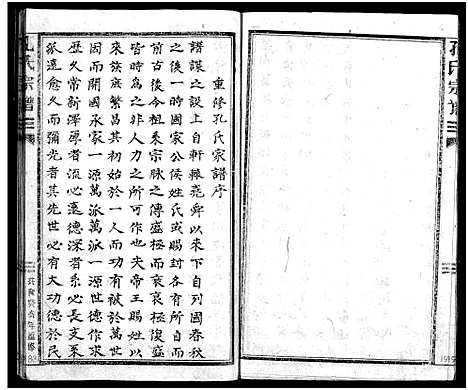 孔氏宗譜
重修孔氏家譜序
譜諜之設上自軒轅堯舜以來下自列國春秋
之後一時國家公候姓氏或賜封有所自焉
前古後今祖奚宗脉之傳盛極而衰衰極復盛
皆時為之非人力之所可作也天帝王賜姓以
來族底繁昌其初始於一人功有被於萬代
因而開國承家一源萬派萬派一源世德作求
歷久常新澤厚者流心遠德深者系心長支系
派遠愈久而彌光者其先世必有大功德於民
孔氏宗譜